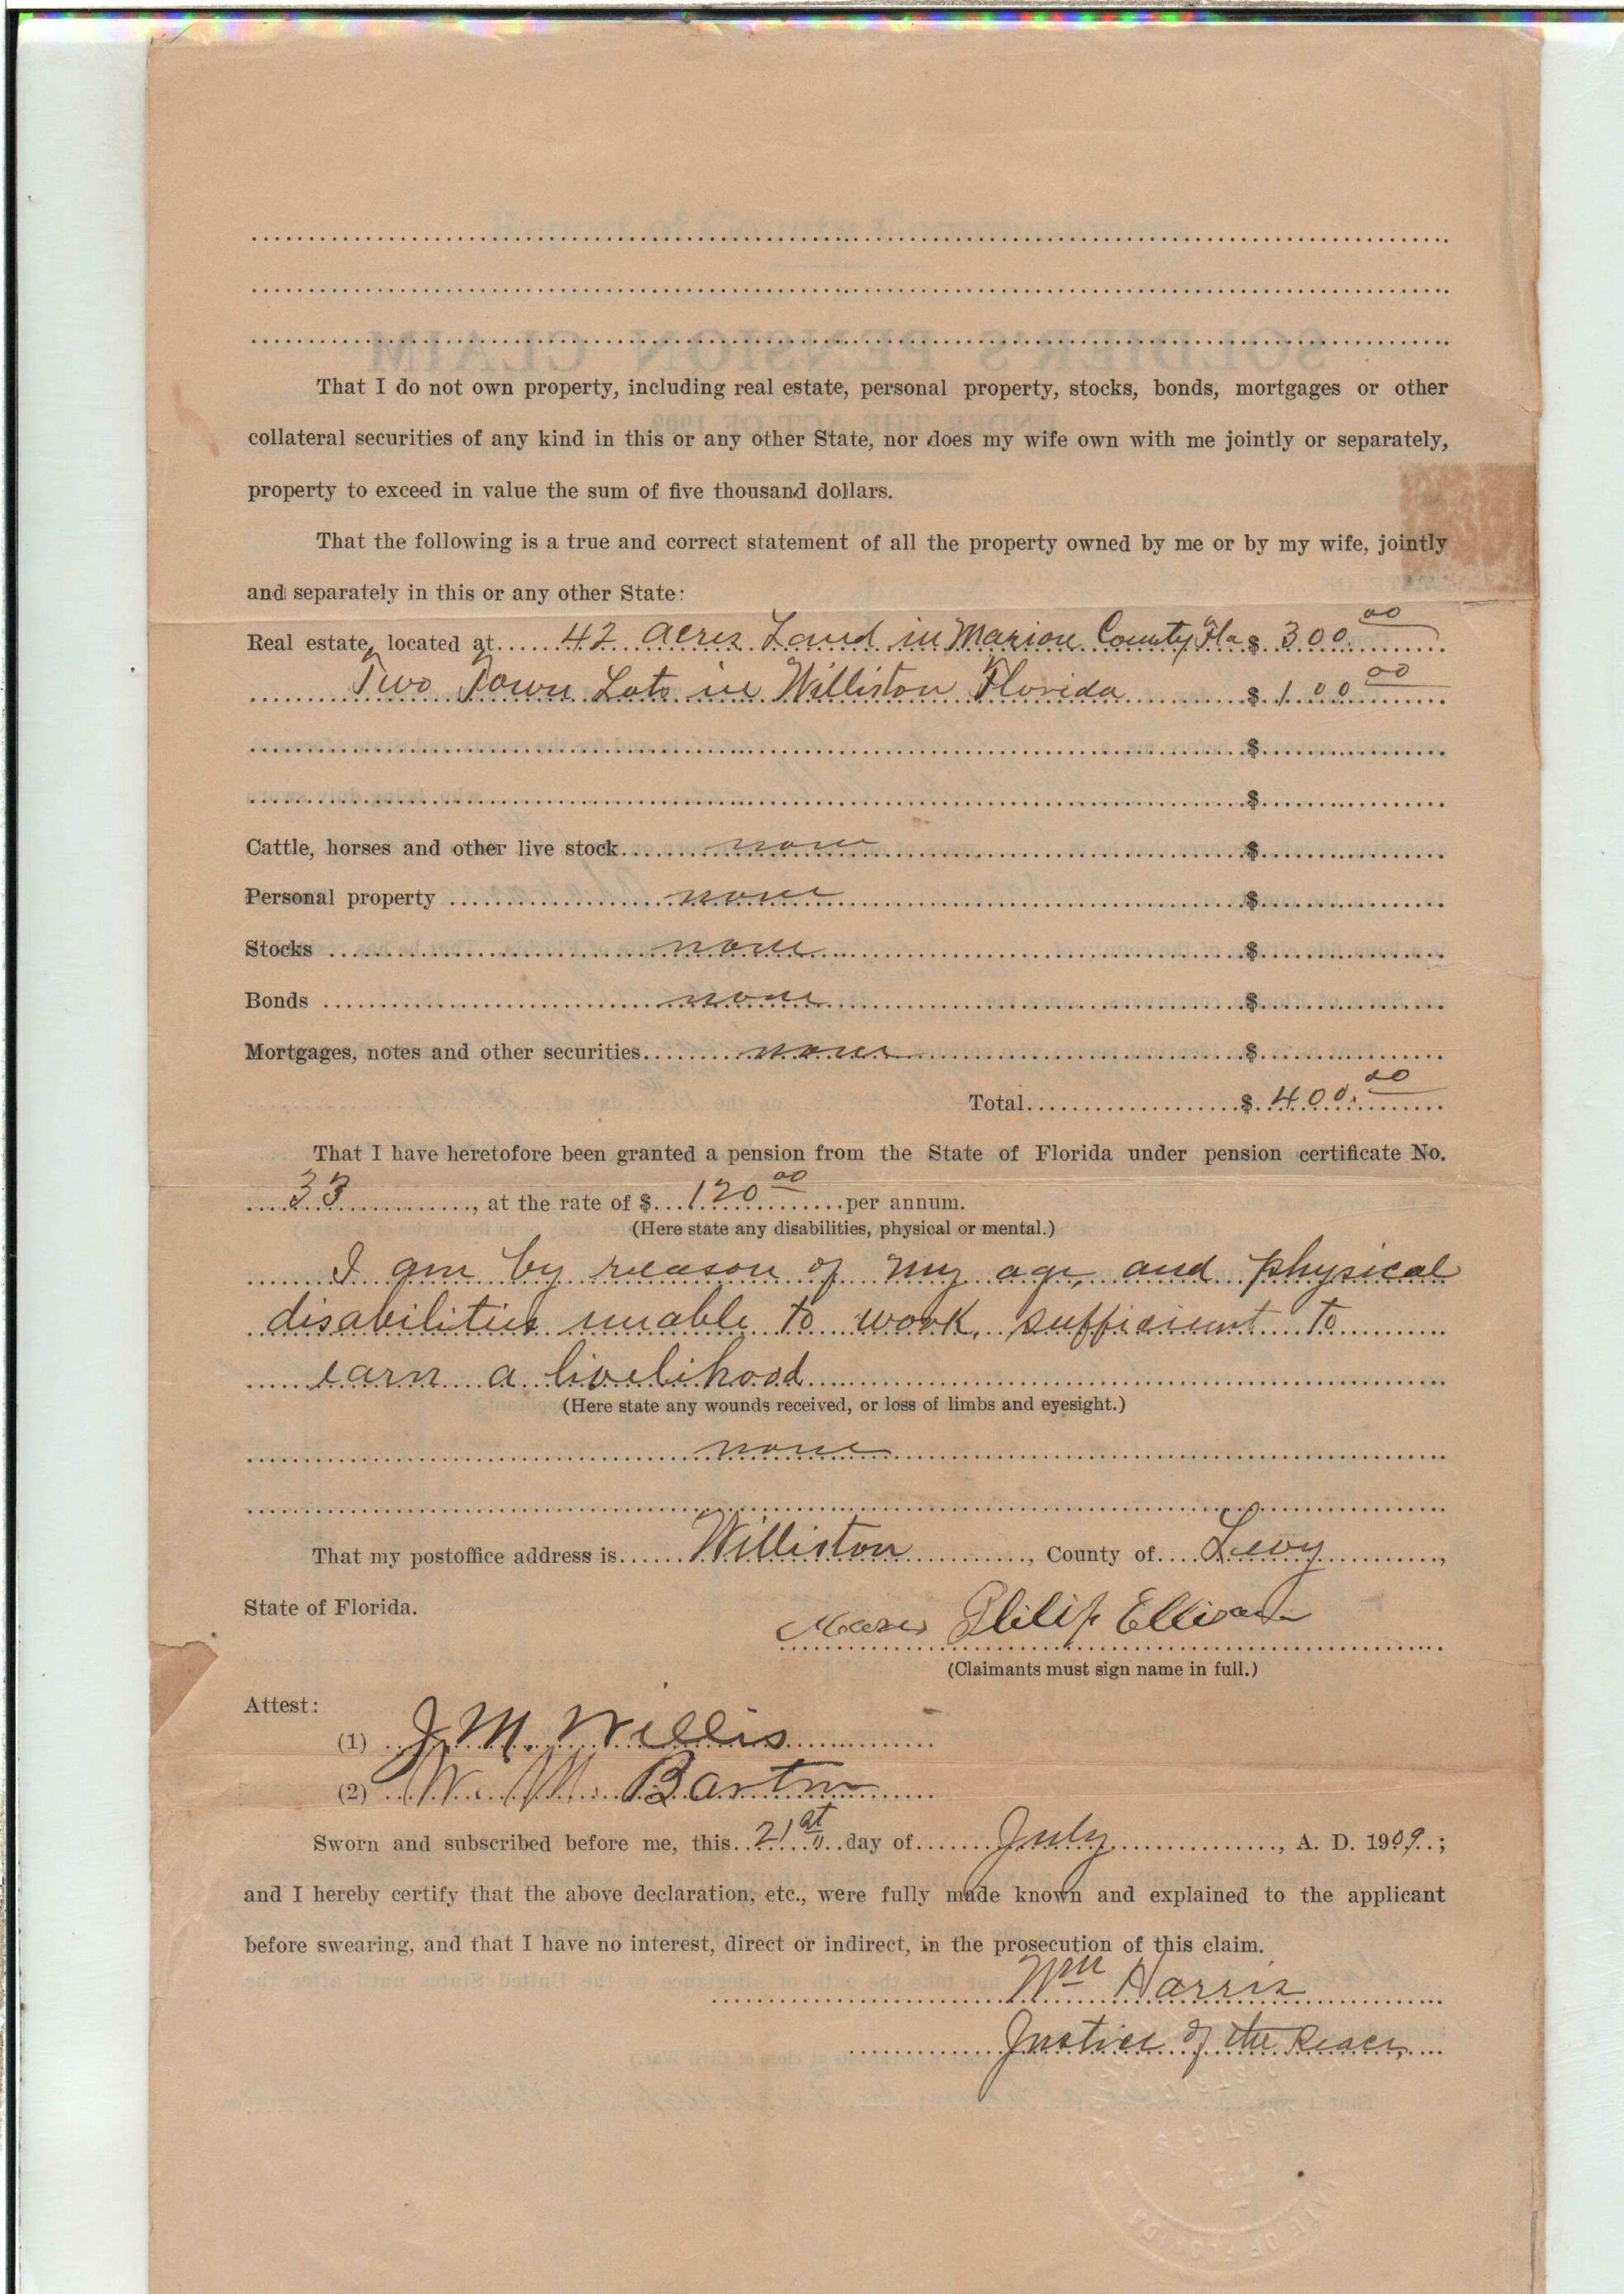 That I do not own property, including real estate, personal property, stocks, bonds, mortgages or other
collateral securities of any kind in this or any other State, nor does my wife own with me jointly or separately,
property to exceed in value the sum of five thousand dollars.
That the following is a true and correct statement of all the property owned by me or by my wife, jointly
and separately in this or any other State:
Real estate, located at 42 acres Land in Marion County Fla $ 300.00
Two Town Lots in Williston Florida $ 100.00
$
$
Cattle, horses and other live stock none $
Personal property none $
Stocks none $
Bonds none $
Mortgages, notes and other securities none $
Total $ 400.00
That I have heretofore been granted a pension from the State of Florida under pension certificate No.
33, at the rate of $ 120 00 per annum.
(Here state any disabilities, physical or mental.)
I am by reason of my age, and physical
disabilities unable to work sufficient to
earn a livelihood
(Here state any wounds received, or loss of limbs and eyesight.)
none
That my postoffice address is Williston, County of Levy,
State of Florida.
Philip Ellison
(Claimants must sign name in full.)
Attest:
(1) J. M. Willis
(2) W. M. Barton
Sworn and subscribed before me, this 21st day of July, A. D. 1909;
and I hereby certify that the above declaration, etc., were fully made known and explained to the applicant
before swearing, and that I have no interest, direct or indirect, in the prosecution of this claim.
Wm Harris
Justice of the Peace